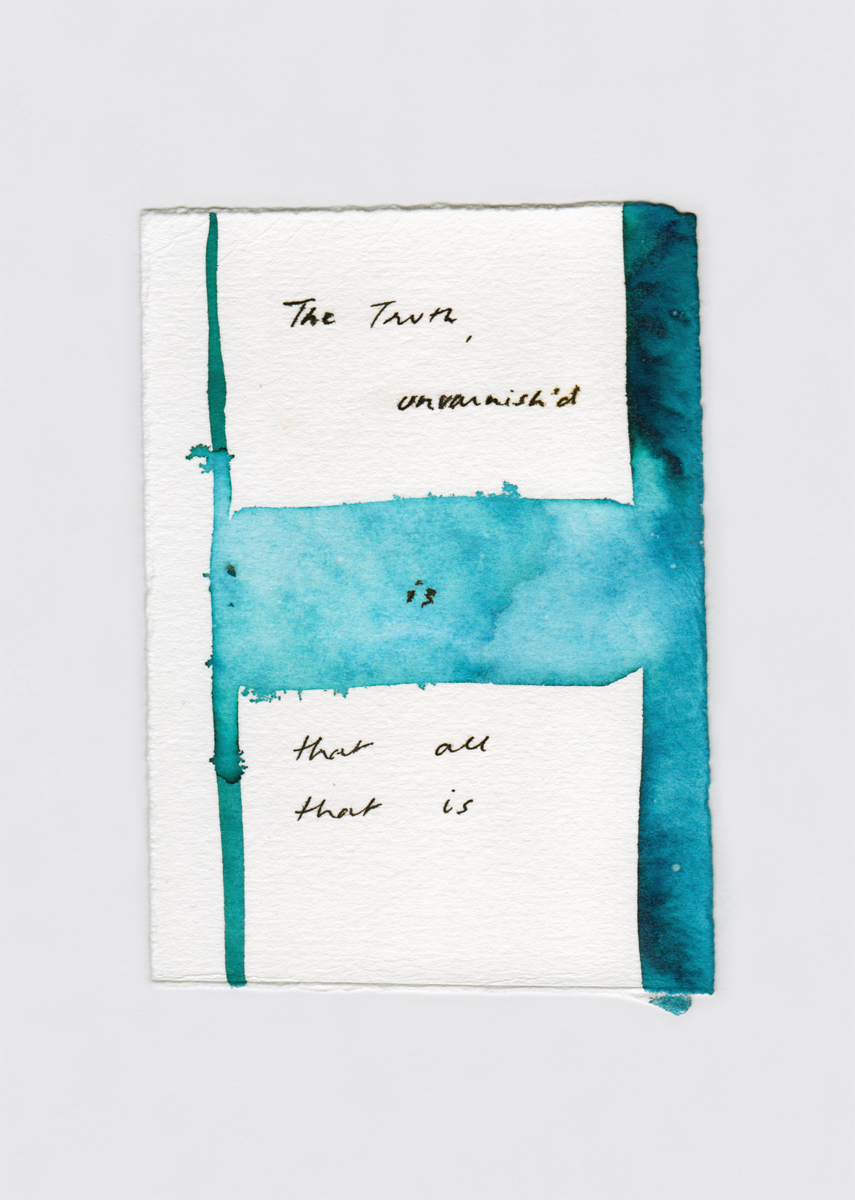 The Truth,
unvarnish'd
is
that all
that is